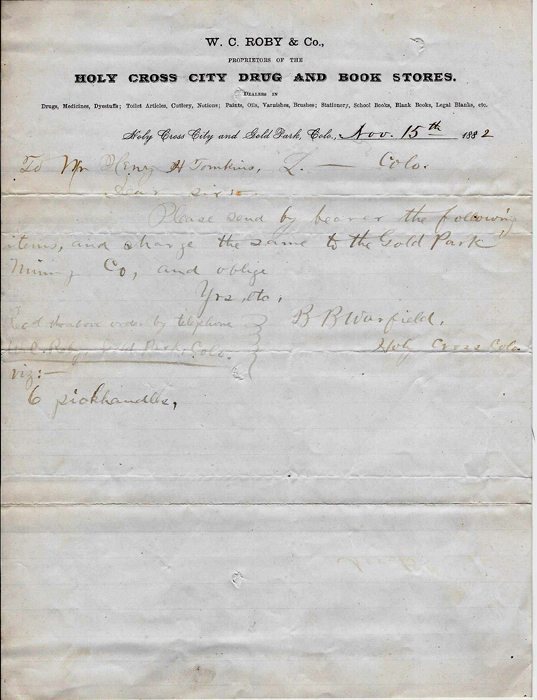 W. C. ROBY & Co.,
PROPRIETORS OF THE
HOLY CROSS CITY DRUG AND BOOK STORES.
DEALERS IN
Drugs, Medicines, Dyestuffs; Toilet Articles, Cutlery, Notions; Paints, Oils, Varnishes, Brushes; Stationery, School Books, Blank Books, Legal Blanks, etc.
Holy Cross City and Gold Park, Colo., Nov. 15th 1882
To Mr Henry H Tomkins, L. — Colo.
Dear sir:
Please send by bearer the following
items, and charge the same to the "Gold Park"
Mining Co, and oblige
Yrs, etc,
Recd above order by telephone } B B Warfield,
W. C. Roby, Gold Park, Colo. } Holy Cross Colo.
viz:—
6 pickhandles,